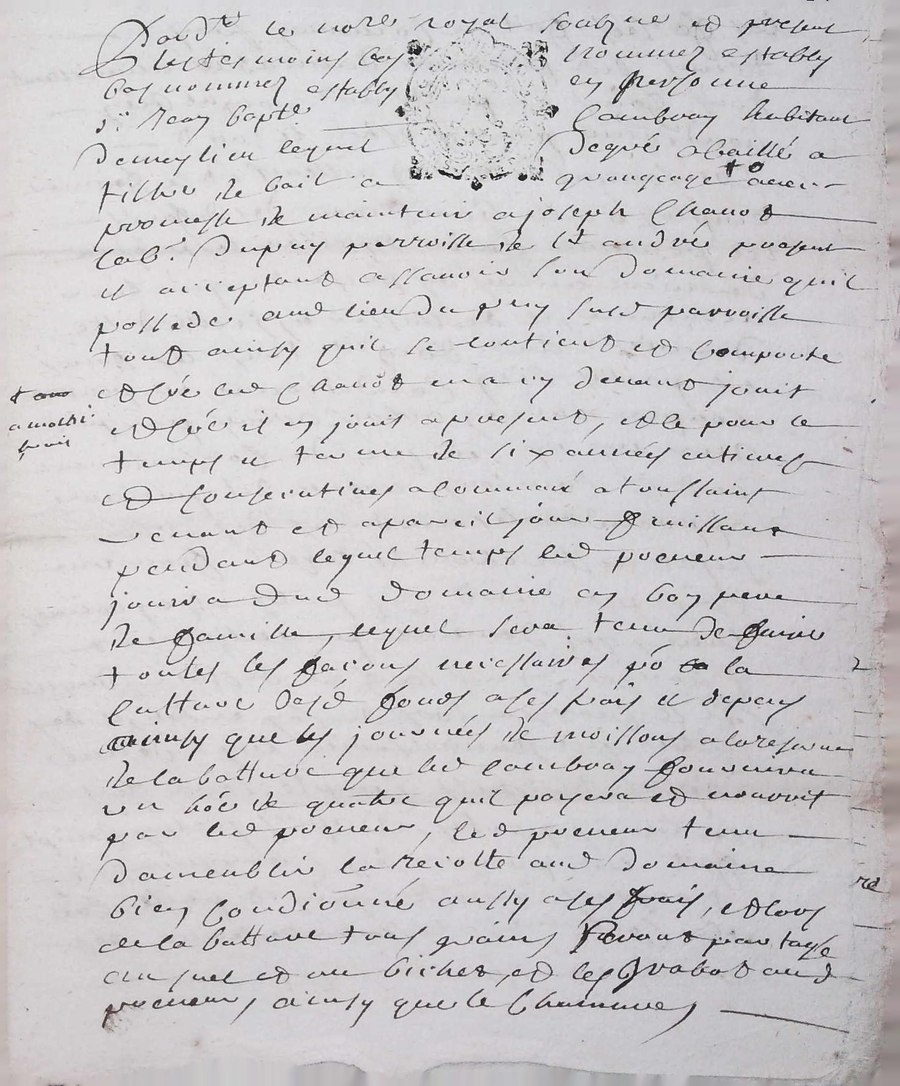 Pard.t le no.re royal soubz.né et present
Les tesmoins bas nommez estably
bas nommez estably en personne
s.r Jean bap.te Cambray habitant
demeylieu lequel degré abaillé a
tiltre de bail a grangeage + avec
promesse de maintenir a joseph Chanot
lab.r Dupuy parroisse de s.t andré present
et acceptant assavoir son Domaine quil
possede aud lieu du puy susd parroisse
tout ainsy quil se contient et comporte
et q̃ led Chanot en a cy devant jouit
et q̃ il en jouit apresent, et ce pour le
+
a moitié
fruit
temps et terme de six années entieres
et consecutives a commancé a toussaint
venant et apareil jour finissant
pendant lequel temps led preneur
jouira dud domaine en bon pere
de famille, lequel sera tenu de faire
toutes les façons necessaires po la
culture desd fonds a ses frais et depens
ainsy que les journées de moissons a la reserve
de la batture que led Cambray fournira
un hõe de quatre quil payera et nourrit
par led preneur, led preneur tenu
dameublir la recolte aud domaine
bien condiõnné aussy a ses frais, et lors
de la batture tous grains seront partagé
au et au bichet, et les aud
preneur, ainsy que le